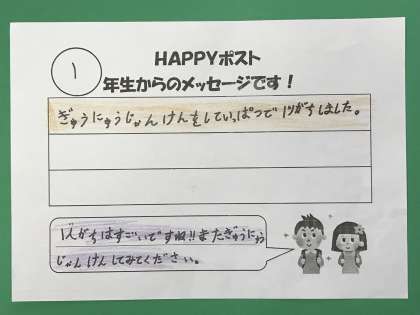 1
HAPPYポスト
年生からのメッセージです！
ぎゅうにゅうじゃんけんをしていっぱつで1りがちしました。
1りがちはすごいですね!!またぎゅうにゅう
じゃんけんしてみてください。